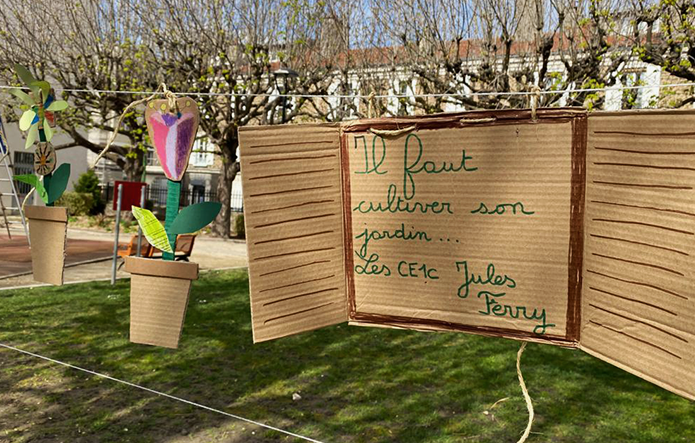 Il faut
cultiver son
jardin...
Les CE1c Jules
Ferry